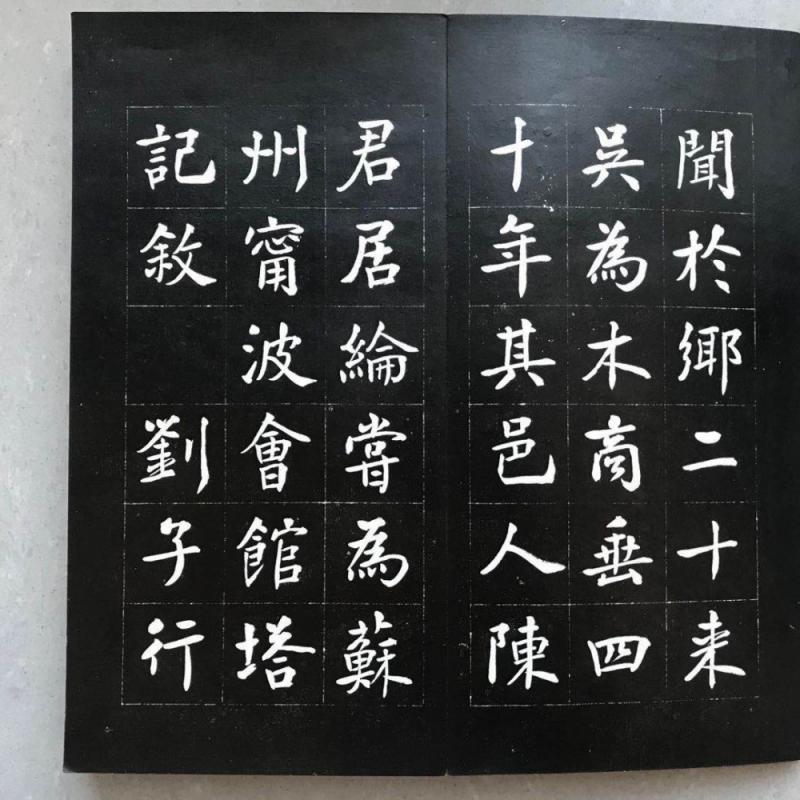 聞於鄉二十来
吳為木商垂四
十年其邑人陳
君居綸嘗為蘇
州甯波會館塔
記敘　劉子行